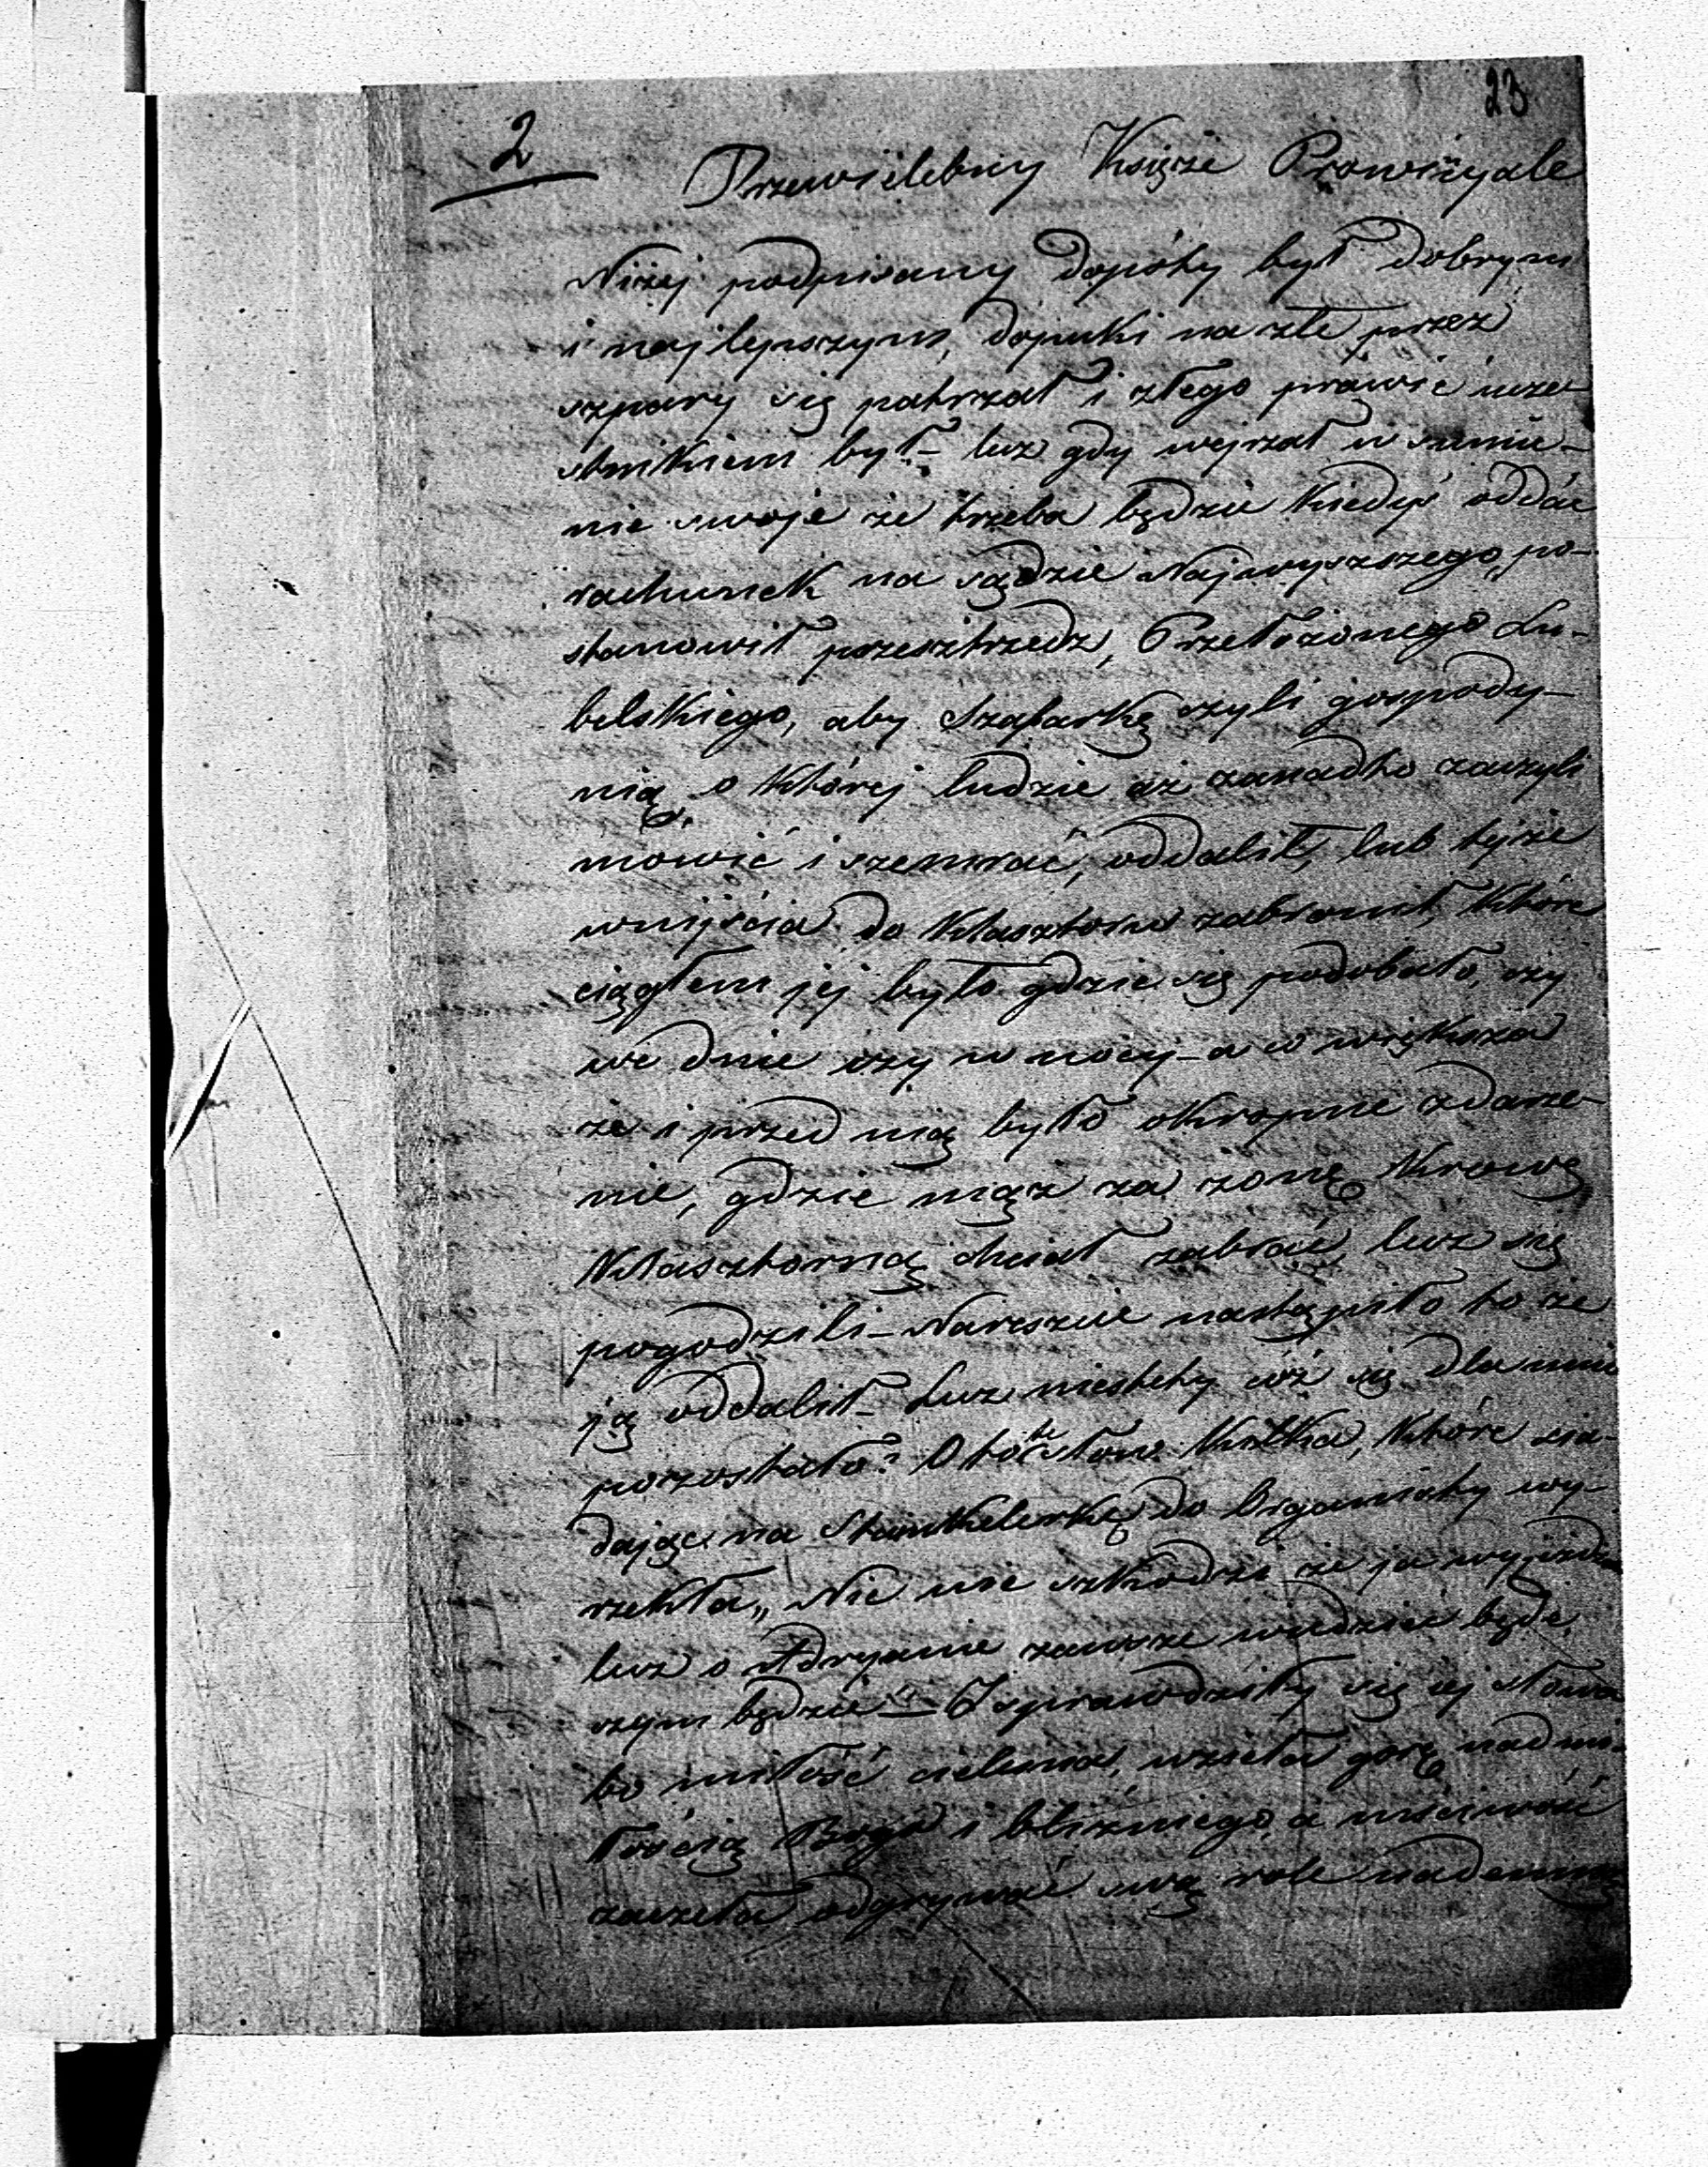 23
2
Przewielebny Księże Prowincyale
Niżej podpisany dopóty był dobrym
i najlepszym, dopuki na złe przez
szpary się patrzał i złego prawie ucze-
stnikiem był – lecz gdy wejrzał w sumie-
nie swoje że trzeba będzie kiedyś oddać
rachunek na sądzie Najwyszszego, po-
stanowił przesztrzedz, Przełożonego Lu-
belskiego, aby Szafarkę czyli gospody-
nią, o której ludzie aż zanadto zaczyli
mówić i szemrać, oddalił, lub tejże
wnijścia do Klasztoru zabronił, które
ciągłem jej było gdzie się podobało, czy
we dnie czy w nocy – a co większa
że i przed nią było okropne zdarze-
nie, gdzie mąż za żonę Krowę
Klasztorną chciał zabrać, lecz się
pogodzili – Nareszcie nastąpiło to że
ją oddalił – Lecz niestety cóż się dla mnie
pozostało? Oto te słów kilka, które sia-
dając na do Organisty wy-
rzekła „Nic nie szkodzi że ja wyjeżdżam
lecz o Adryanie zawsze wiedzieć będę,
czym będzie" – I sprawdziły się jej słowa
bo miłość cielesna, wzięła górę nad mi-
łością Boga i bliźniego, a mściwość
zaczęła odgrywać swą role nademną